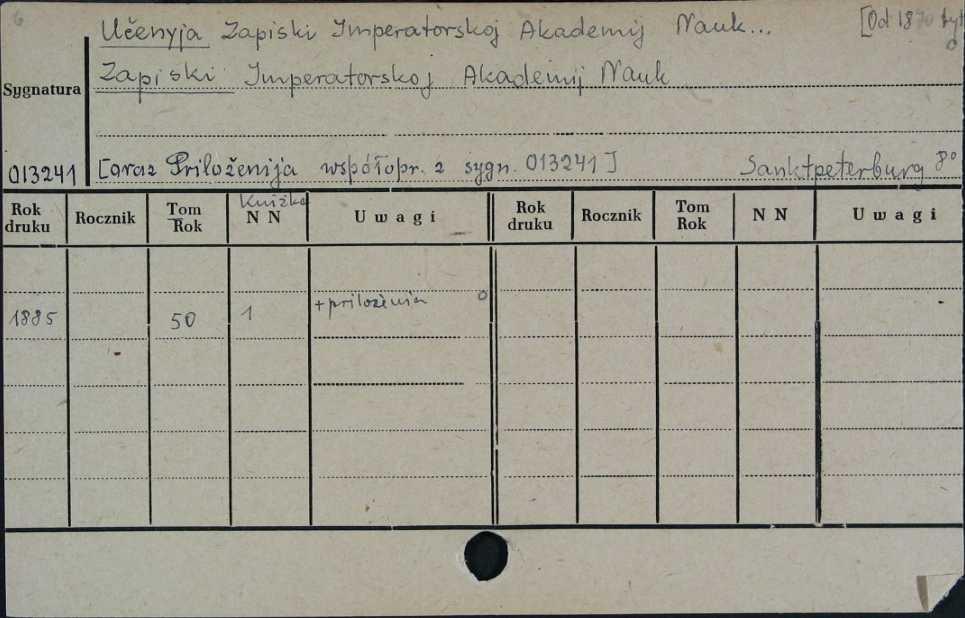 6
Učenyja Zapiski Imperatorskoj Akademij Nauk... [Od 18
Sygnatura
Zapiski Imperatorskoj Akademij Nauk
013241 [oraz Priloženija współopr. z sygn. 013241] Sanktpeterburg 8°
Rok druku Rocznik Tom Rok Knižka N N Uwagi Rok druku Rocznik Tom Rok N N Uwagi
1885 50 1 +priloženia